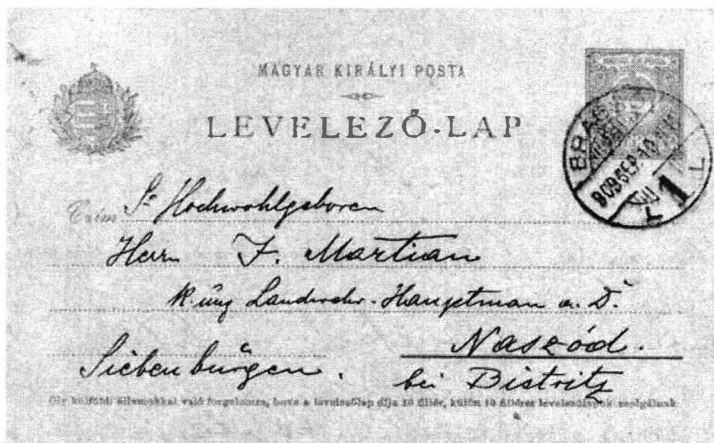 MAGYAR KIRÁLYI POSTA
LEVELEZŐ-LAP
BRAS
909 SEP 10
1
Czím Sr Hochwohlgeboren
Herrn J. Martian
k. ung Landwehr-Hauptman a. D.
Naszód.
Siebenbürgen. bei Bistritz
Oly külföldi államokkal való forgalomra, hova a levelezőlap díja 10 fillér, külön 10 filléres levelezőlapok szolgálnak